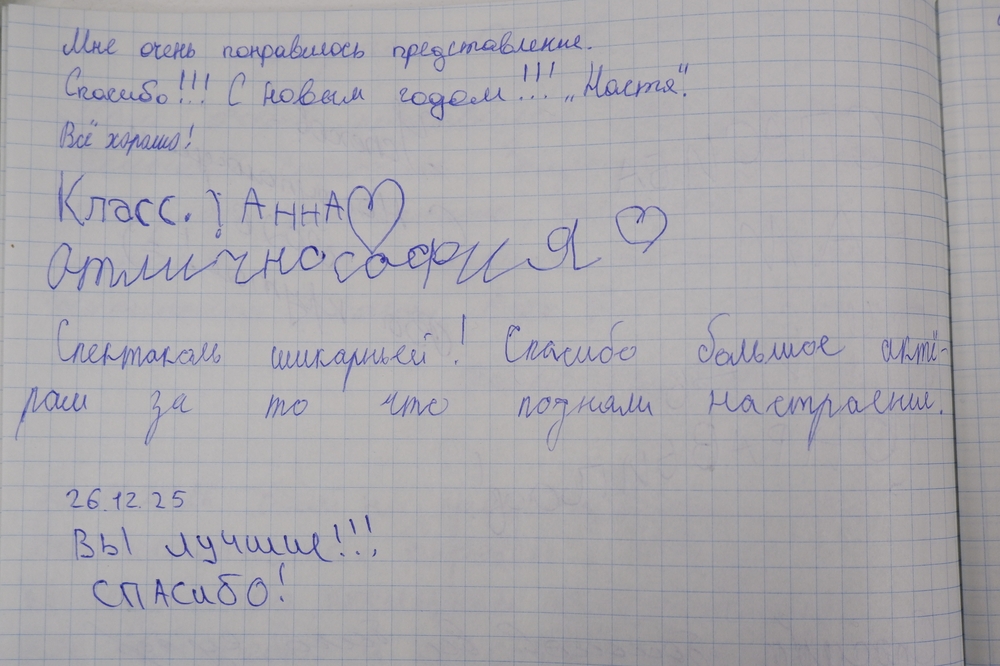 Мне очень понравилось представление.
Спасибо!!! С новым годом!!! „Настя“.
Всё хорошо!
Класс. ! АннА♡
Отлично софия Я ♡
Спектакль шикарный! Спасибо большое актё-
рам за то что подняли настраение.
26.12.25
ВЫ лучшие!!!
СПАСИБО!